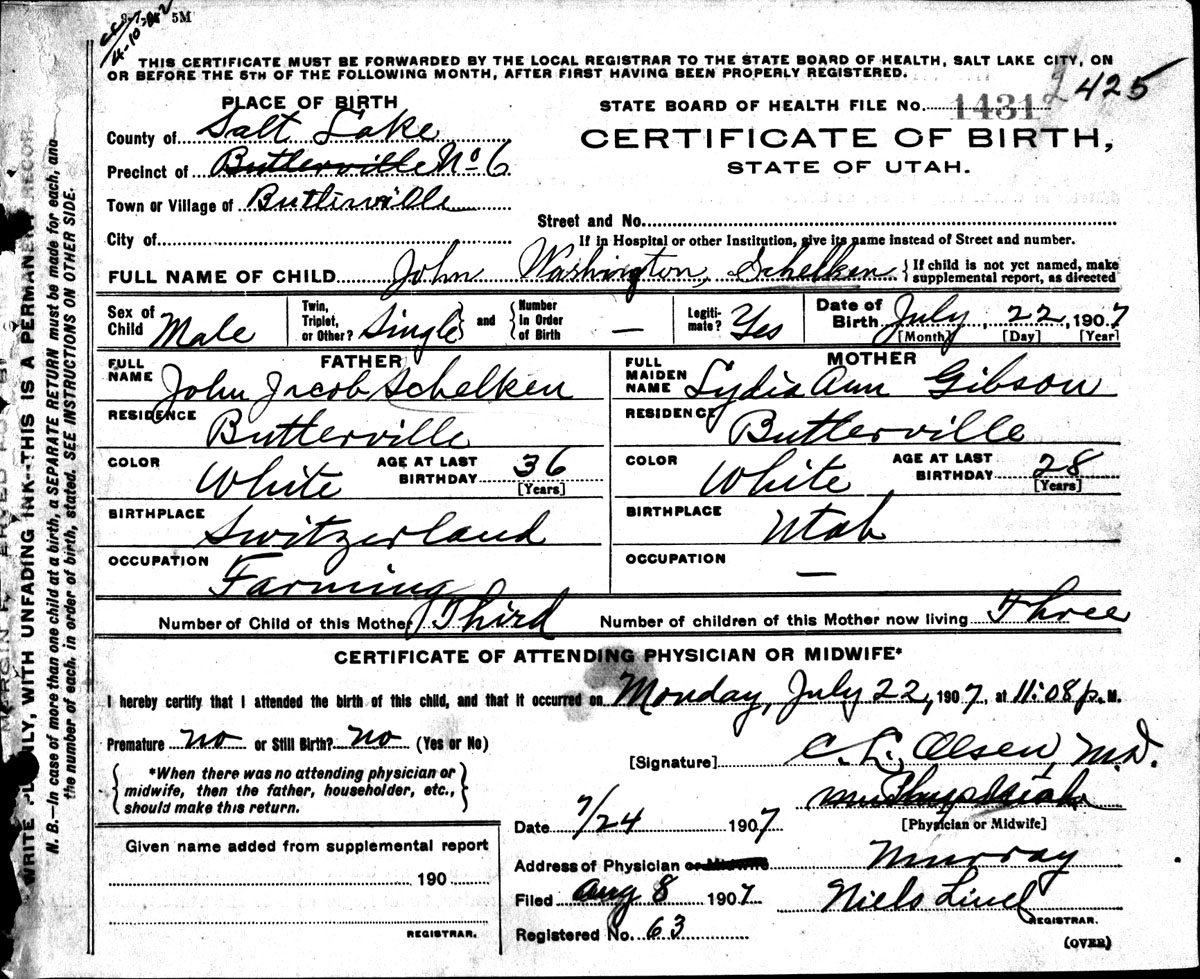 8-7-05 5M
4-10-
THIS CERTIFICATE MUST BE FORWARDED BY THE LOCAL REGISTRAR TO THE STATE BOARD OF HEALTH, SALT LAKE CITY, ON
OR BEFORE THE 5TH OF THE FOLLOWING MONTH, AFTER FIRST HAVING BEEN PROPERLY REGISTERED.
PLACE OF BIRTH
County of Salt Lake
Precinct of Butlerville No 6
Town or Village of Butlerville
City of
STATE BOARD OF HEALTH FILE No. 1431 2 425
CERTIFICATE OF BIRTH,
STATE OF UTAH.
Street and No.
If in Hospital or other Institution, give its name instead of Street and number.
FULL NAME OF CHILD John Washington, Schelken {If child is not yet named, make
supplemental report, as directed
Sex of Child Male
Twin, Triplet, or Other? Single} and {Number in Order of Birth —
Legiti-mate? Yes
Date of Birth July, 22, 1907
[Month] [Day] [Year]
FATHER
FULL NAME John Jacob Schelken
RESIDENCE Butterville
COLOR White AGE AT LAST BIRTHDAY 36 [Years]
BIRTHPLACE Switzerland
OCCUPATION Farming
MOTHER
FULL MAIDEN NAME Lydia Ann Gibson
RESIDENCE Butterville
COLOR White AGE AT LAST BIRTHDAY 28 [Years]
BIRTHPLACE Utah
OCCUPATION —
Number of Child of this Mother Third Number of children of this Mother now living Three
CERTIFICATE OF ATTENDING PHYSICIAN OR MIDWIFE*
I hereby certify that I attended the birth of this child, and that it occurred on Monday, July 22, 1907, at 11:08 p. M.
Premature no or Still Birth? no (Yes or No)
{*When there was no attending physician or
midwife, then the father, householder, etc.,
should make this return.}
[Signature] C. L. Olsen, M.D.
[Physician or Midwife]
Date 7/24 1907
Address of Physician or Midwife Murray
Filed Aug 8 1907 Niels Lind
REGISTRAR.
Registered No. 63
(OVER)
Given name added from supplemental report
190
REGISTRAR.
WRITE PLAINLY, WITH UNFADING INK--THIS IS A PERMANENT RECORD
N. B.—In case of more than one child at a birth, a SEPARATE RETURN must be made for each, and
the number of each, in order of birth, stated. SEE INSTRUCTIONS ON OTHER SIDE.